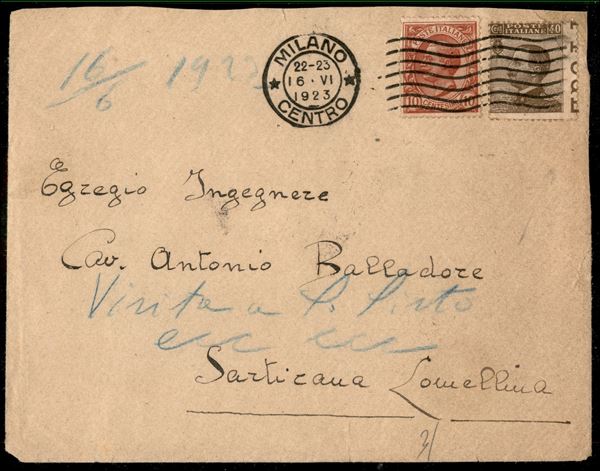 16/6 1923
MILANO
22-23
16 · VI
1923
CENTRO
POSTE ITALIANE
10 CENT 10
POSTE ITALIANE
40
Egregio Ingegnere
Cav. Antonio Balladore
Visita a
Sartirana Lomellina